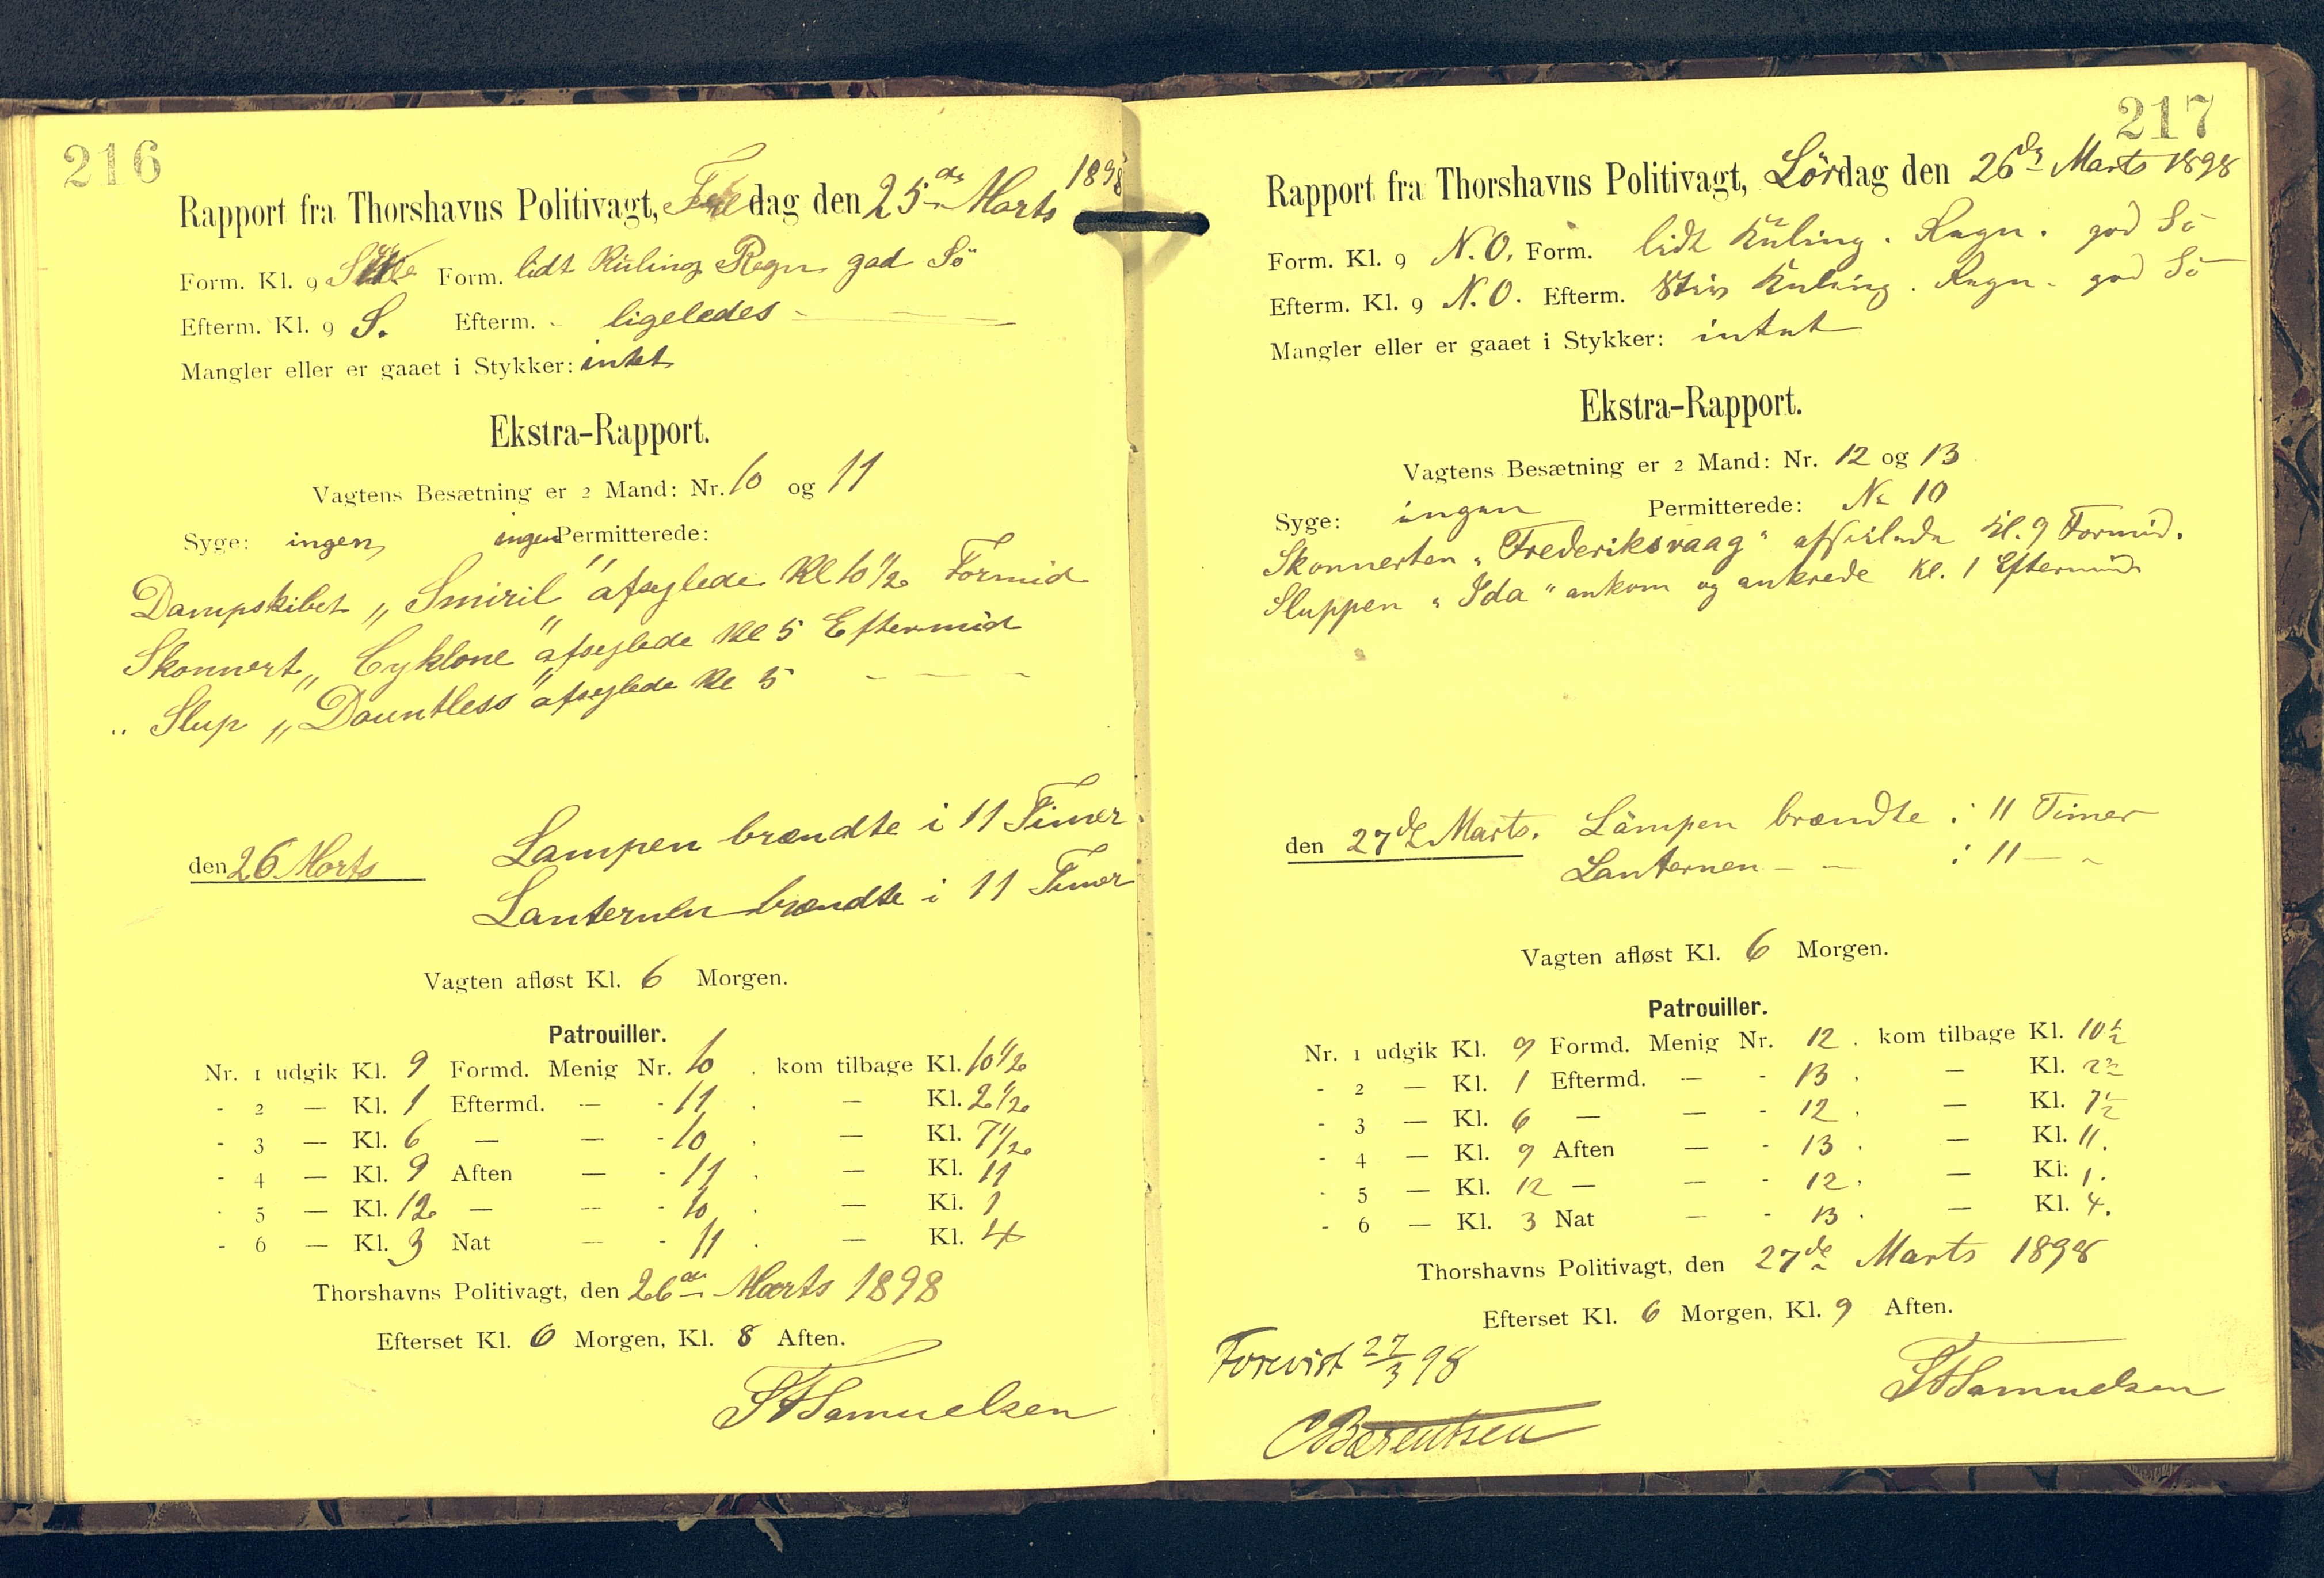 216
Rapport fra Thorshavns Politivagt, Fredag den 25de Marts 1898
Form. Kl. 9 Form. lidt Kuling Regn god Sö
Efterm. Kl. 9 S. Efterm. - ligeledes -
Mangler eller er gaaet i Stykker: intet
Ekstra-Rapport.
Vagtens Besætning er 2 Mand: Nr. 10 og 11
Syge: ingen ingen Permitterede:
Dampskibet „Smiril" afseglede Kl 10 1/2 Formid
Skonnert „Cyklone" afseglede Kl 5 Eftermid
" Slup „Dauntless" afseglede Kl 5 - - -
den 26 Marts Lampen brændte i 11 Timer
Lanternen brændte i 11 Timer
Vagten afløst Kl. 6 Morgen.
Patrouiller.
Nr. 1 udgik Kl. 9 Formd. Menig Nr. 10 . kom tilbage Kl. 10 1/2
- 2 — Kl. 1 Eftermd. — - 11 . — Kl. 2 1/2
- 3 — Kl. 6 — — - 10 . — Kl. 7 1/2
- 4 — Kl. 9 Aften — - 11 . — Kl. 11
- 5 — Kl. 12 — — - 10 . — Kl. 1
- 6 — Kl. 3 Nat — - 11 . — Kl. 4
Thorshavns Politivagt, den 26de Marts 1898
Efterset Kl. 6 Morgen, Kl. 8 Aften.
Samuelsen
217
Rapport fra Thorshavns Politivagt, Lördag den 26de Marts 1898
Form. Kl. 9 N.O. Form. lidt Kuling. Regn. god Sö
Efterm. Kl. 9 N.O. Efterm. Stiv Kuling. Regn. god Sö
Mangler eller er gaaet i Stykker: intet
Ekstra-Rapport.
Vagtens Besætning er 2 Mand: Nr. 12 og 13
Syge: ingen Permitterede: No 10
Skonnerten „Frederiksvaag" afseilede Kl. 9 Formid.
Sluppen „Ida" ankom og ankrede Kl. 1 Eftermid
den 27de Marts. Lampen brændte i 11 Timer
Lanternen - - i 11 - -
Vagten afløst Kl. 6 Morgen.
Patrouiller.
Nr. 1 udgik Kl. 9 Formd. Menig Nr. 12 . kom tilbage Kl. 10 1/2
- 2 — Kl. 1 Eftermd. — - 13 . — Kl. 2 1/2
- 3 — Kl. 6 — — - 12 . — Kl. 7 1/2
- 4 — Kl. 9 Aften — - 13 . — Kl. 11.
- 5 — Kl. 12 — — - 12 . — Kl. 1.
- 6 — Kl. 3 Nat — - 13 . — Kl. 4.
Thorshavns Politivagt, den 27de Marts 1898
Efterset Kl. 6 Morgen, Kl. 9 Aften.
Forevist 27/3 98
Samuelsen
CBærentsen